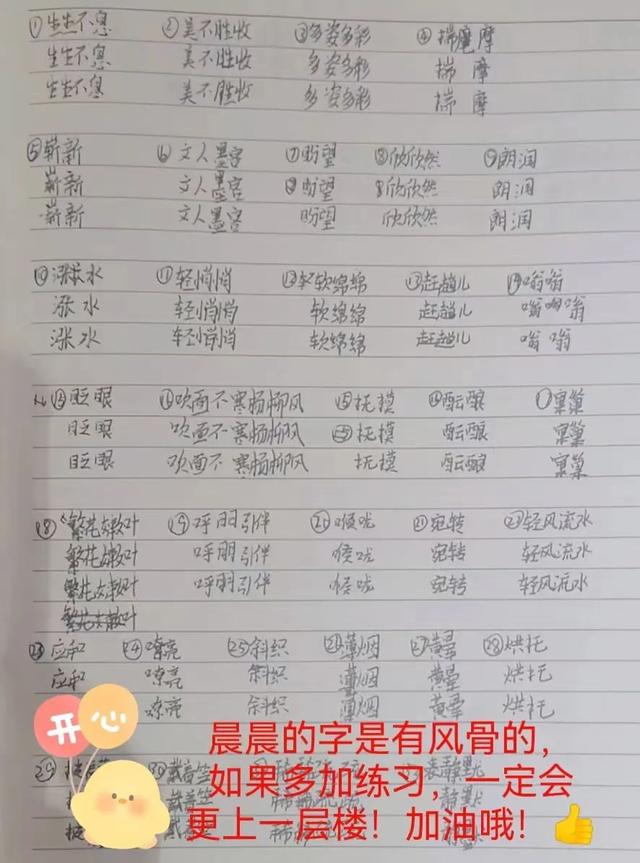 ①生生不息 ②美不胜收 ③多姿多彩 ④揣摩
生生不息 美不胜收 多姿多彩 揣 摩
生生不息 美不胜收 多姿多彩 揣 摩
⑤崭新 ⑥文人墨客 ⑦盼望 ⑧欣欣然 ⑨朗润
崭新 文人墨客 盼望 欣欣然 朗润
崭新 文人墨客 盼望 欣欣然 朗润
⑩涨水 ⑪轻悄悄 ⑫软绵绵 ⑬赶趟儿 ⑭嗡嗡
涨 水 轻悄悄 软绵绵 赶趟儿 嗡嗡
涨 水 轻悄悄 软绵绵 赶趟儿 嗡 嗡
眨眼 吹面不寒杨柳风 抚摸 酝酿 窠巢
眨眼 吹面不寒杨柳风 抚摸 酝酿 窠巢
眨眼 吹面不寒杨柳风 抚摸 酝酿 窠巢
⑱繁花嫩叶 ⑲呼朋引伴 喉咙 ㉑宛转 轻风流水
繁花嫩叶 呼朋引伴 喉咙 宛转 轻风流水
繁花嫩叶 呼朋引伴 喉咙 宛转 轻风流水
㉓应和 ㉔嘹亮 ㉕斜织 薄烟 ㉗黄晕 ㉘烘托
应和 嘹亮 斜织 薄烟 黄晕 烘托
嘹亮 斜织 薄烟 黄晕 烘托
开心
晨晨的字是有风骨的，
如果多加练习，一定会
更上一层楼！加油哦！
㉙ 戴着笠 静默
静默